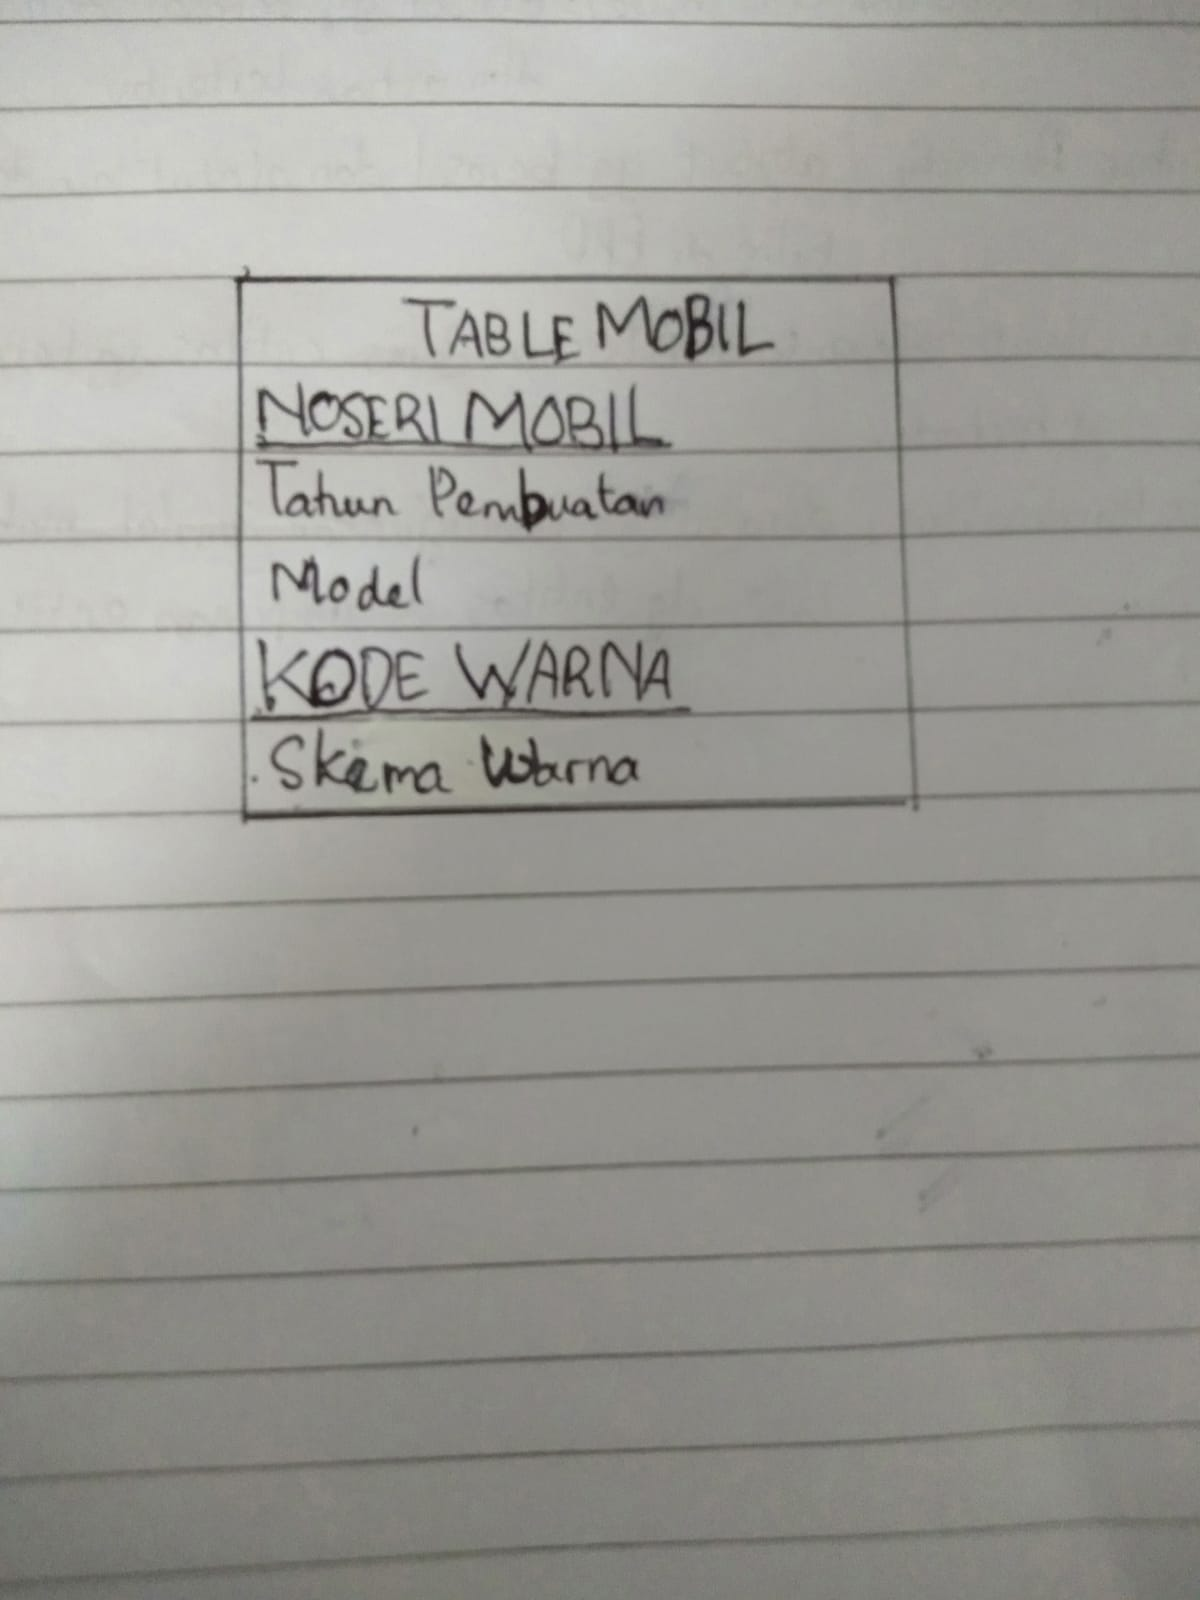 TABLE MOBIL
NOSERI MOBIL
Tahun Pembuatan
Model
KODE WARNA
Skema Warna